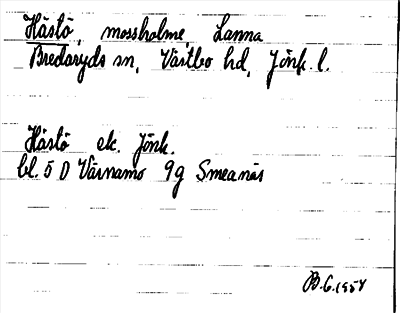 Hästö, mossholme, Lanna
Bredaryds sn, Västbo hd, Jönk. l.
Hästö ek. Jönk.
bl. 5 D Värnamo 9g Smeanäs
B.G. 1954